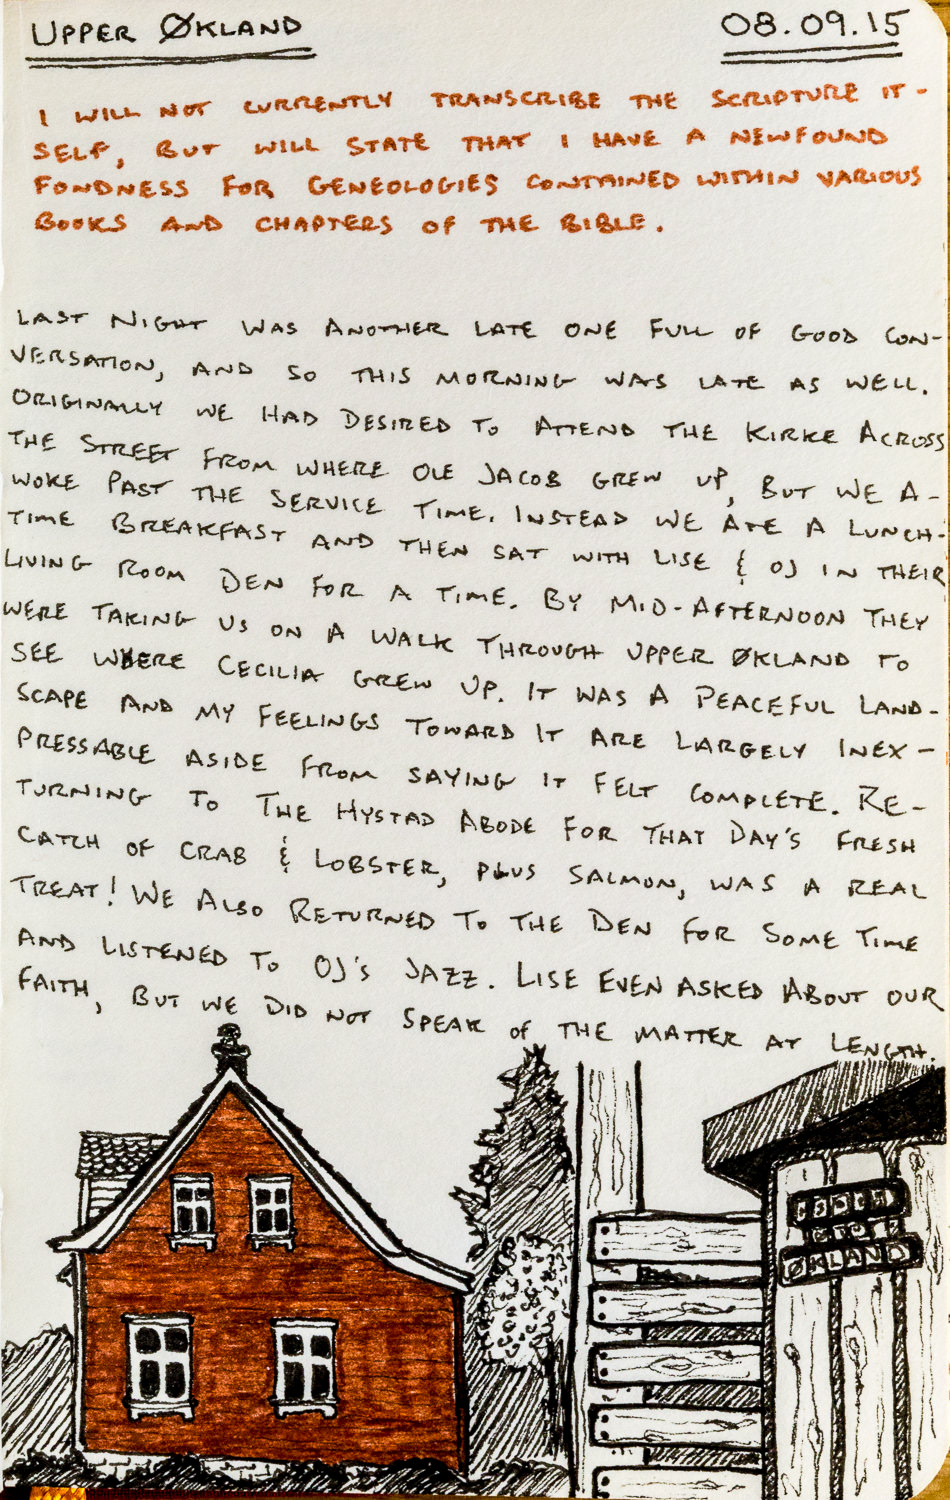 UPPER ØKLAND
08.09.15
I WILL NOT CURRENTLY TRANSCRIBE THE SCRIPTURE IT-
SELF, BUT WILL STATE THAT I HAVE A NEWFOUND
FONDNESS FOR GENEOLOGIES CONTAINED WITHIN VARIOUS
BOOKS AND CHAPTERS OF THE BIBLE.
LAST NIGHT WAS ANOTHER LATE ONE FULL OF GOOD CON-
VERSATION, AND SO THIS MORNING WAS LATE AS WELL.
ORIGINALLY WE HAD DESIRED TO ATTEND THE KIRKE ACROSS
THE STREET FROM WHERE OLE JACOB GREW UP, BUT WE A-
WOKE PAST THE SERVICE TIME. INSTEAD WE ATE A LUNCH-
TIME BREAKFAST AND THEN SAT WITH LISE & OJ IN THEIR
LIVING ROOM DEN FOR A TIME. BY MID-AFTERNOON THEY
WERE TAKING US ON A WALK THROUGH UPPER ØKLAND TO
SEE WHERE CECILIA GREW UP. IT WAS A PEACEFUL LAND-
SCAPE AND MY FEELINGS TOWARD IT ARE LARGELY INEX-
PRESSABLE ASIDE FROM SAYING IT FELT COMPLETE. RE-
TURNING TO THE HYSTAD ABODE FOR THAT DAY'S FRESH
CATCH OF CRAB & LOBSTER, PLUS SALMON, WAS A REAL
TREAT! WE ALSO RETURNED TO THE DEN FOR SOME TIME
AND LISTENED TO OJ'S JAZZ. LISE EVEN ASKED ABOUT OUR
FAITH, BUT WE DID NOT SPEAK OF THE MATTER AT LENGTH.
ØKLAND